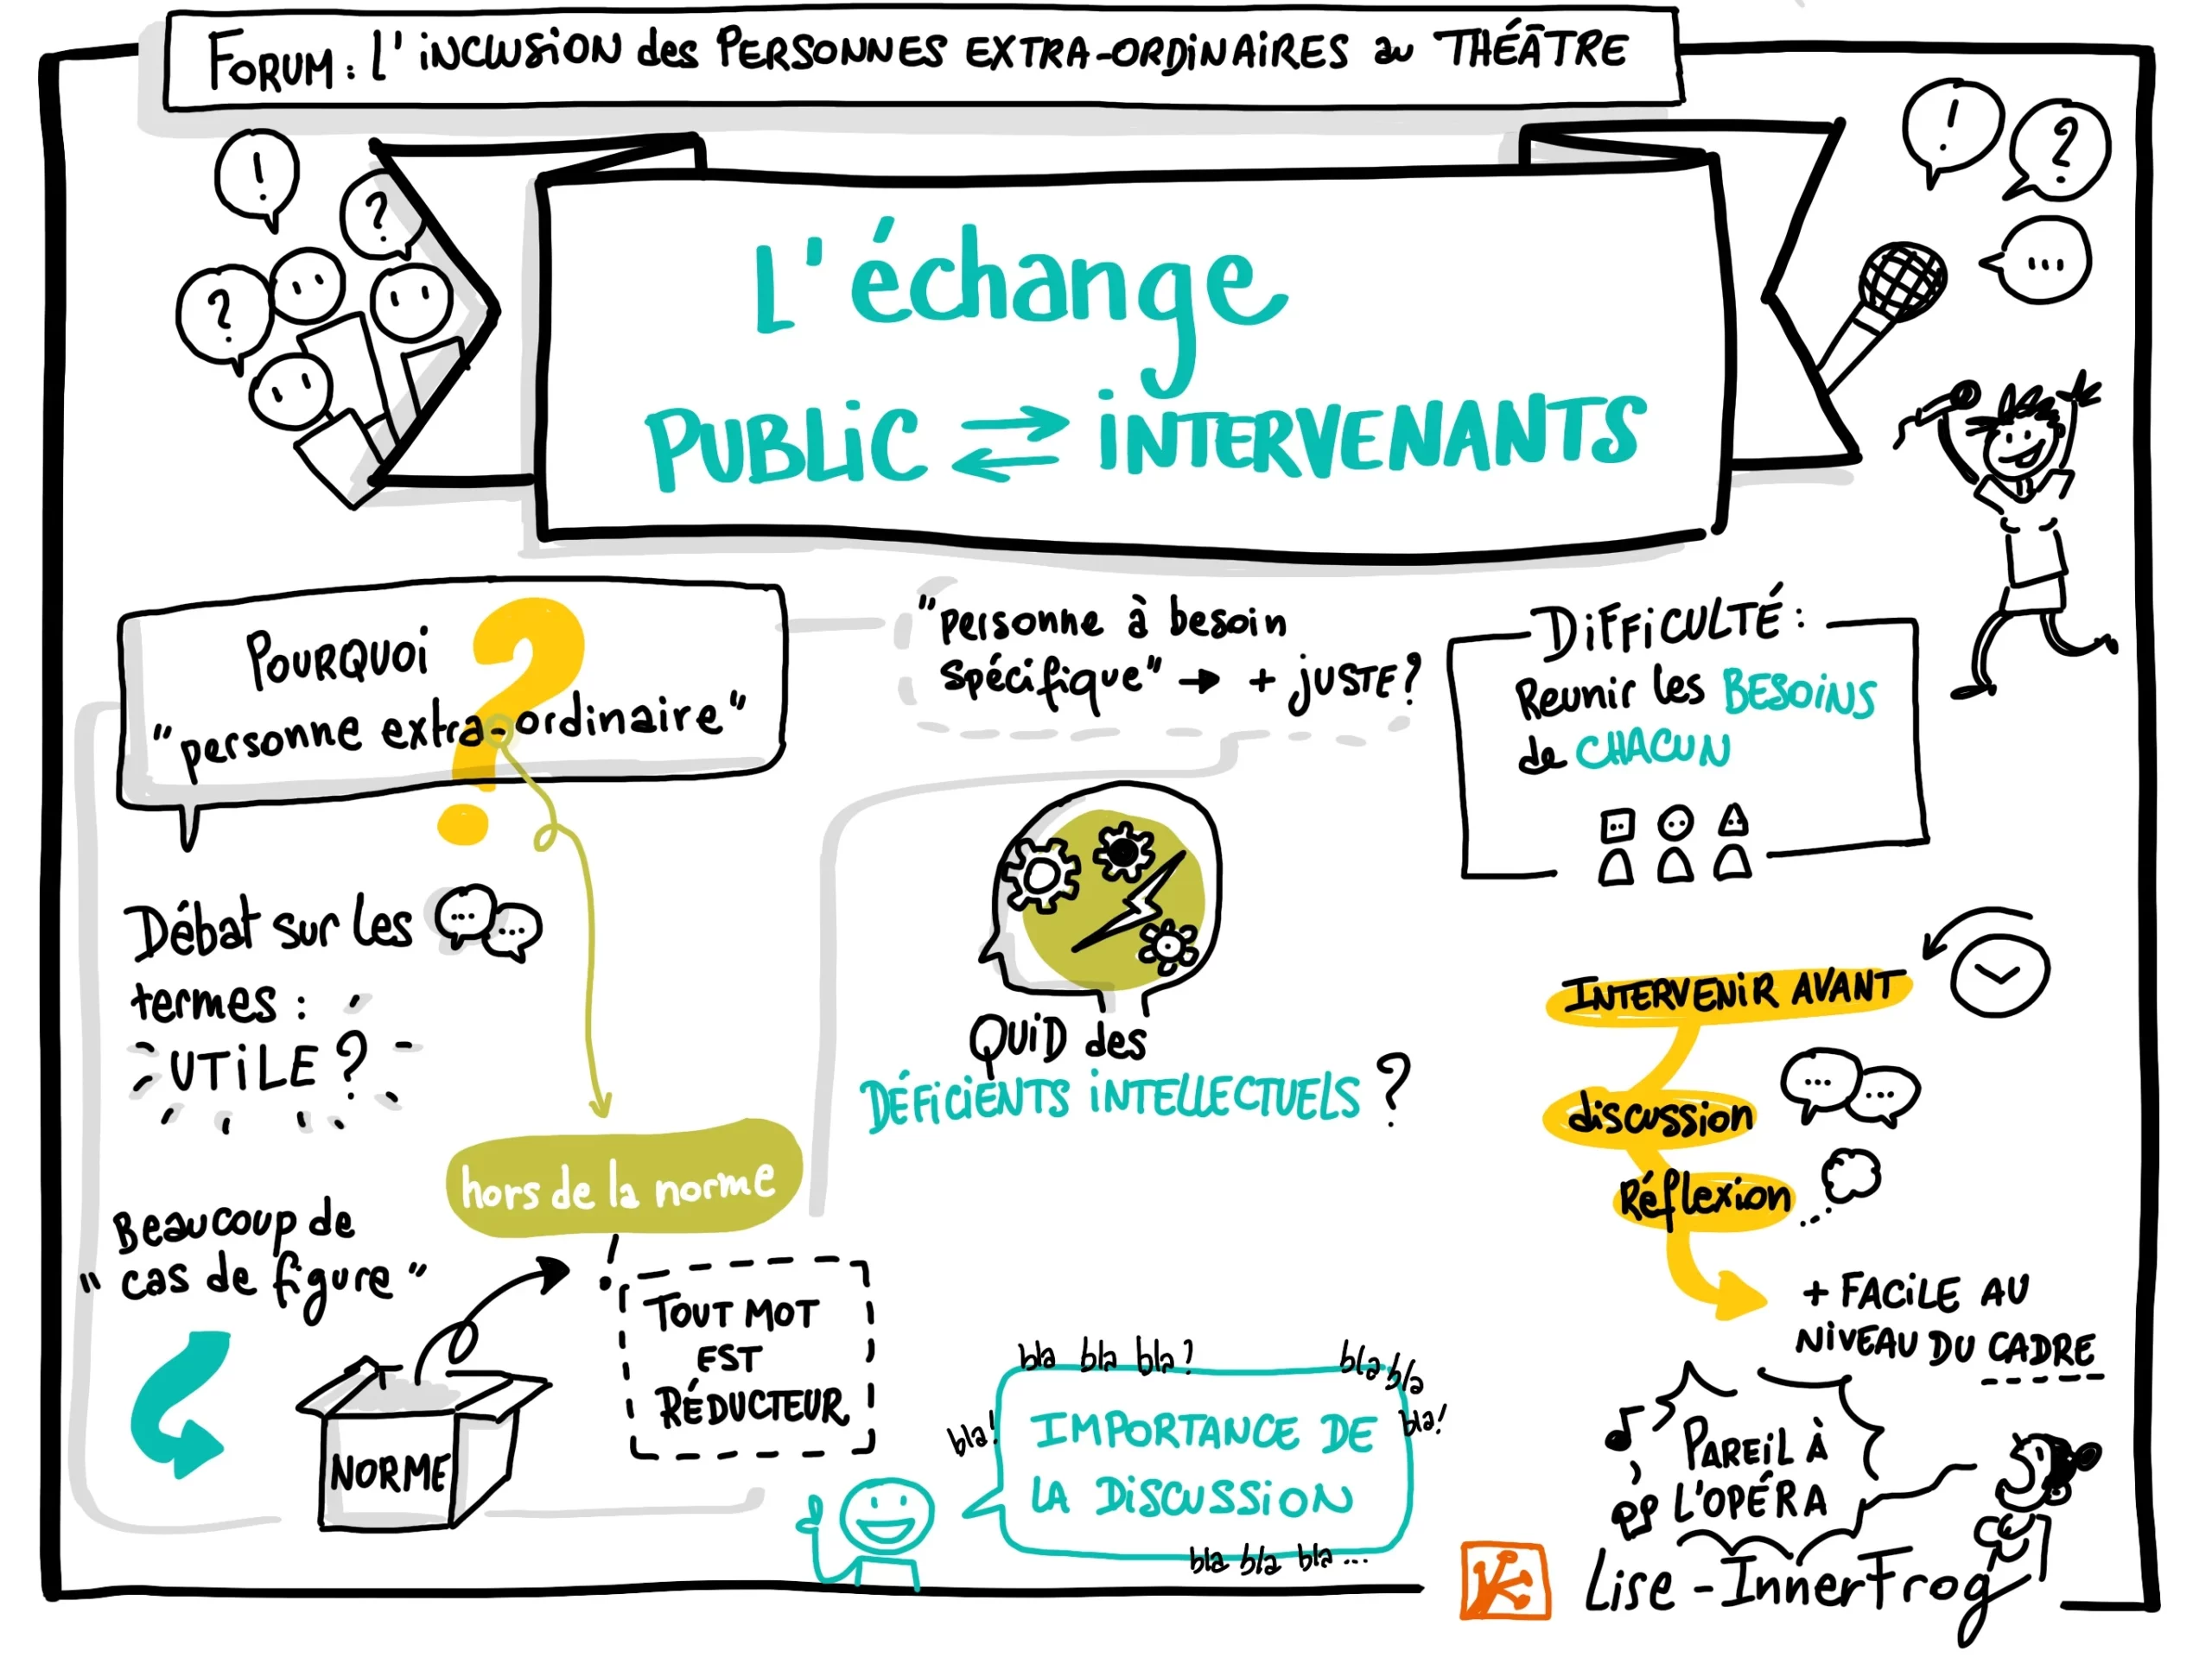 FORUM : L'iNCLUSiON des PERSONNES EXTRA-ORDiNAiRES au THÉÂTRE
!
?
?
!
?
...
L'échange
PUBLiC ⇄ iNTERVENANTS
POURQUOi
"personne extra-ordinaire"
?
"personne à besoin
spécifique" → + JUSTE ?
DiFFiCULTÉ :
Reunir les BESOiNS
de CHACUN
Débat sur les
termes :
UTiLE ?
QUiD des
DÉFiCiENTS iNTELLECTUELS ?
INTERVENiR AVANT
discussion
Réflexion
+ FACiLE AU
NiVEAU DU CADRE
hors de la norme
Beaucoup de
"cas de figure"
NORME
TOUT MOT
EST
RÉDUCTEUR
bla bla bla ?
bla bla
bla !
bla !
IMPORTANCE DE
LA DiSCUSSiON
bla bla bla ...
PAREiL À
L'OPÉRA
Lise - InnerFrog